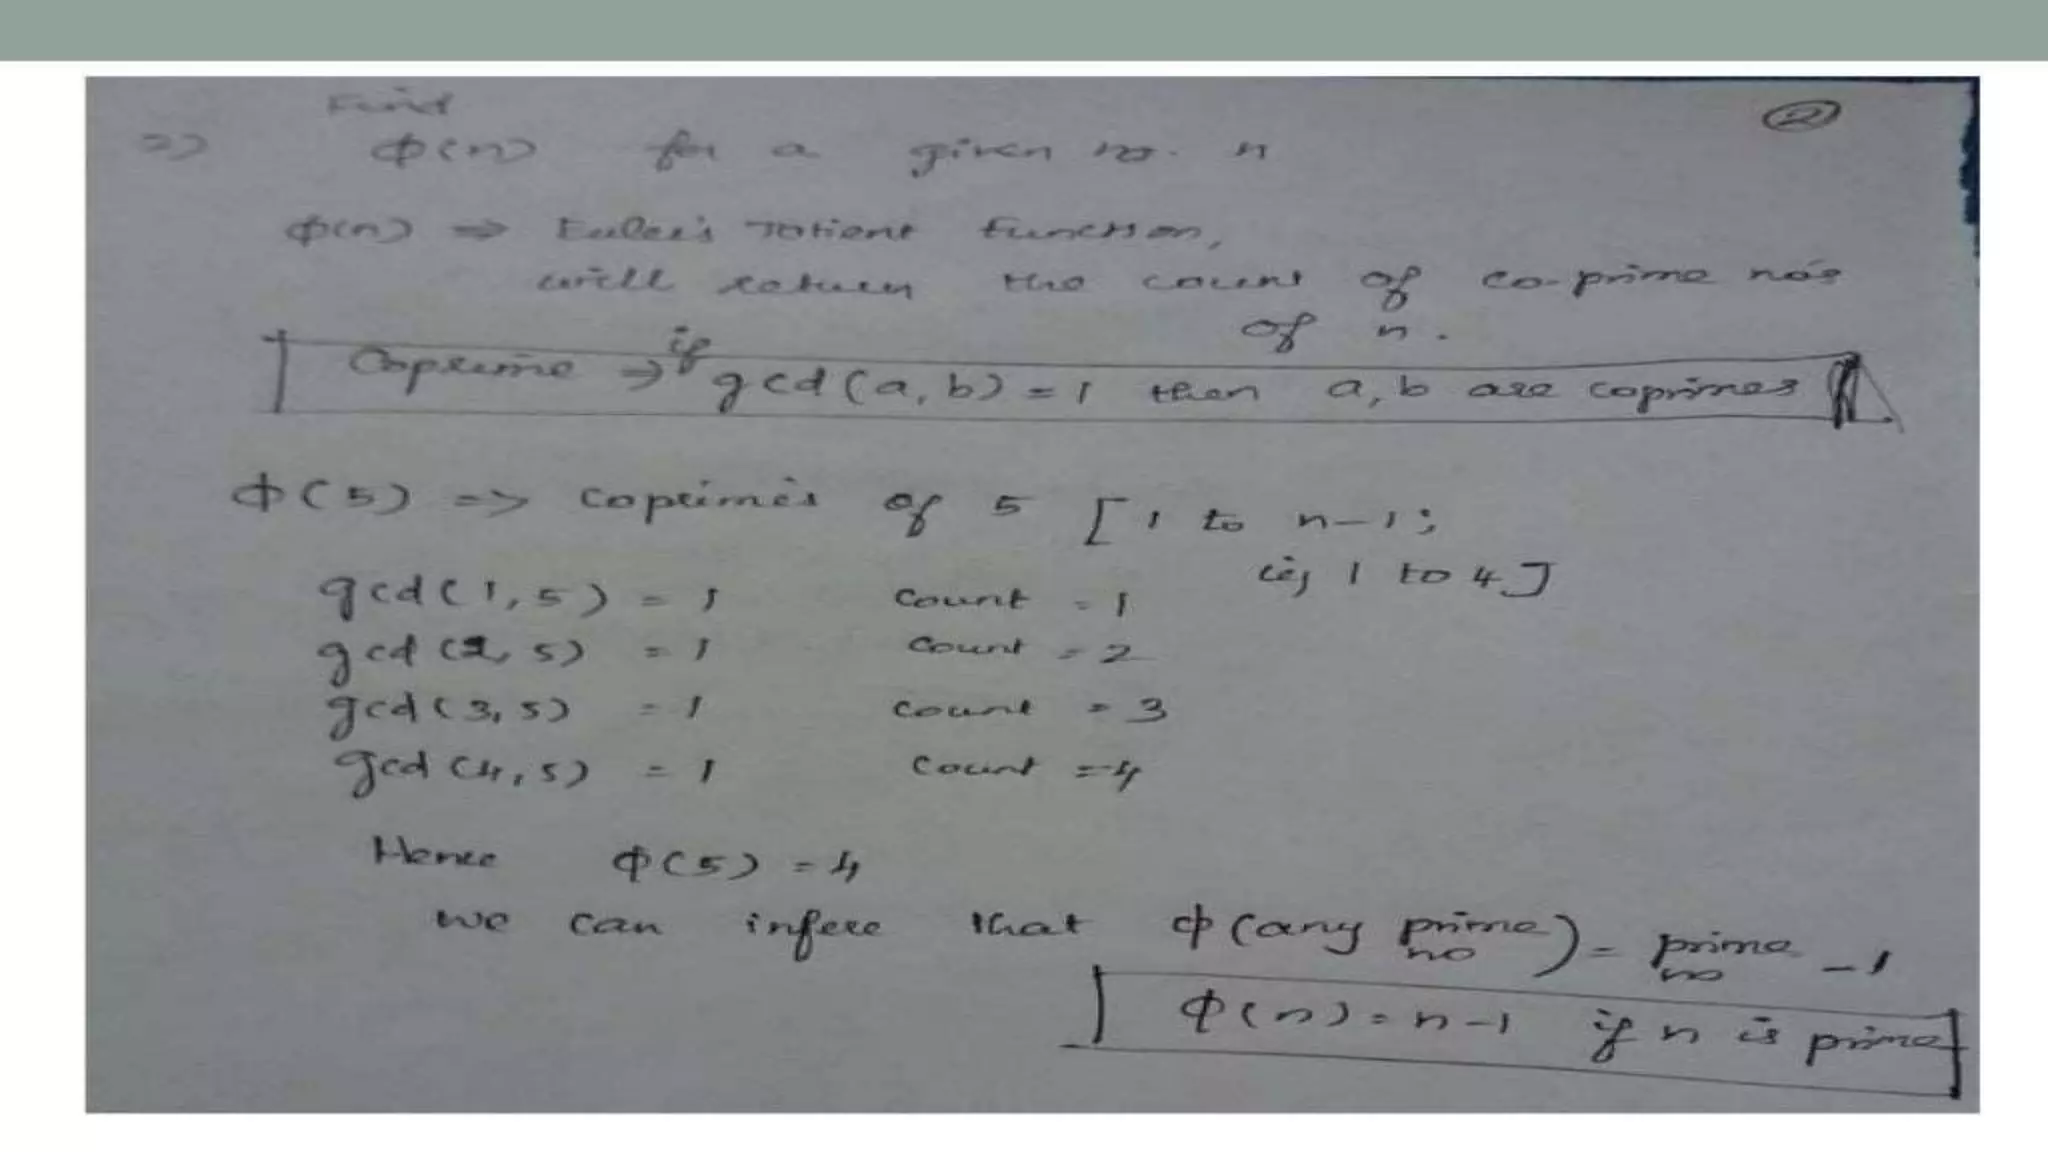 ②
Find
=> ϕ(n) for a given no. n
ϕ(n) => Euler's Totient Function,
will return the count of co-prime no's
of n.
Coprime => if gcd(a,b)=1 then a,b are coprimes
ϕ(5) => coprimes of 5 [1 to n-1;
ie, 1 to 4]
gcd(1,5) = 1 count = 1
gcd(2,5) = 1 count = 2
gcd(3,5) = 1 count = 3
gcd(4,5) = 1 count = 4
Hence ϕ(5) = 4
we can infer that ϕ(any prime no) = prime no - 1
ϕ(n) = n-1 if n is prime